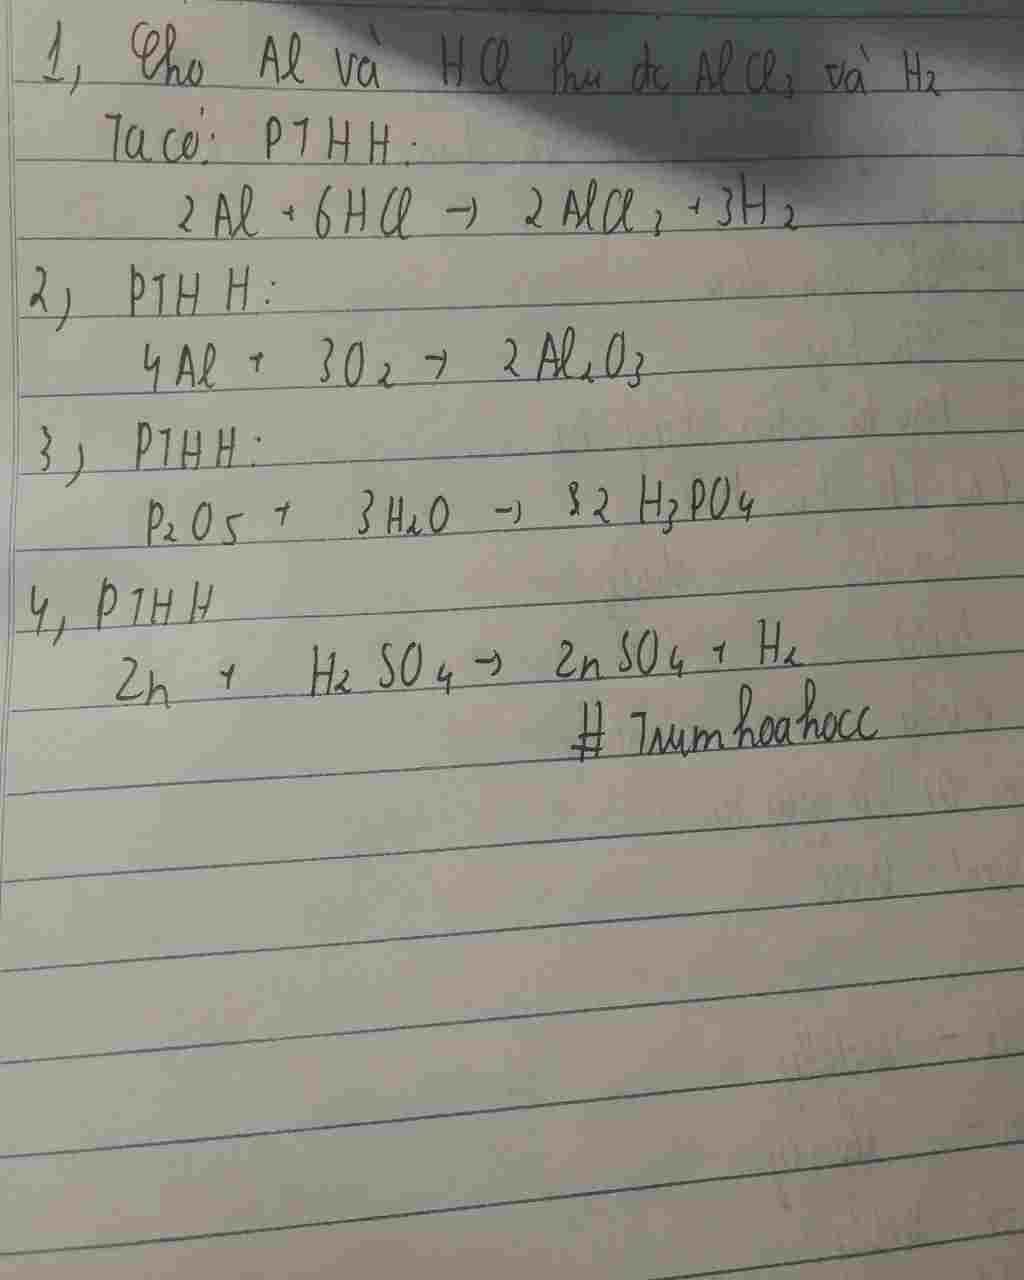 1, Cho Al và HCl thu đc AlCl₃ và H₂
Ta có: PTHH:
2Al + 6HCl → 2AlCl₃ + 3H₂
2) PTHH:
4Al + 3O₂ → 2Al₂O₃
3) PTHH:
P₂O₅ + 3H₂O → 2 H₃PO₄
4, PTHH
Zn + H₂SO₄ → ZnSO₄ + H₂
# Trumhoahocc